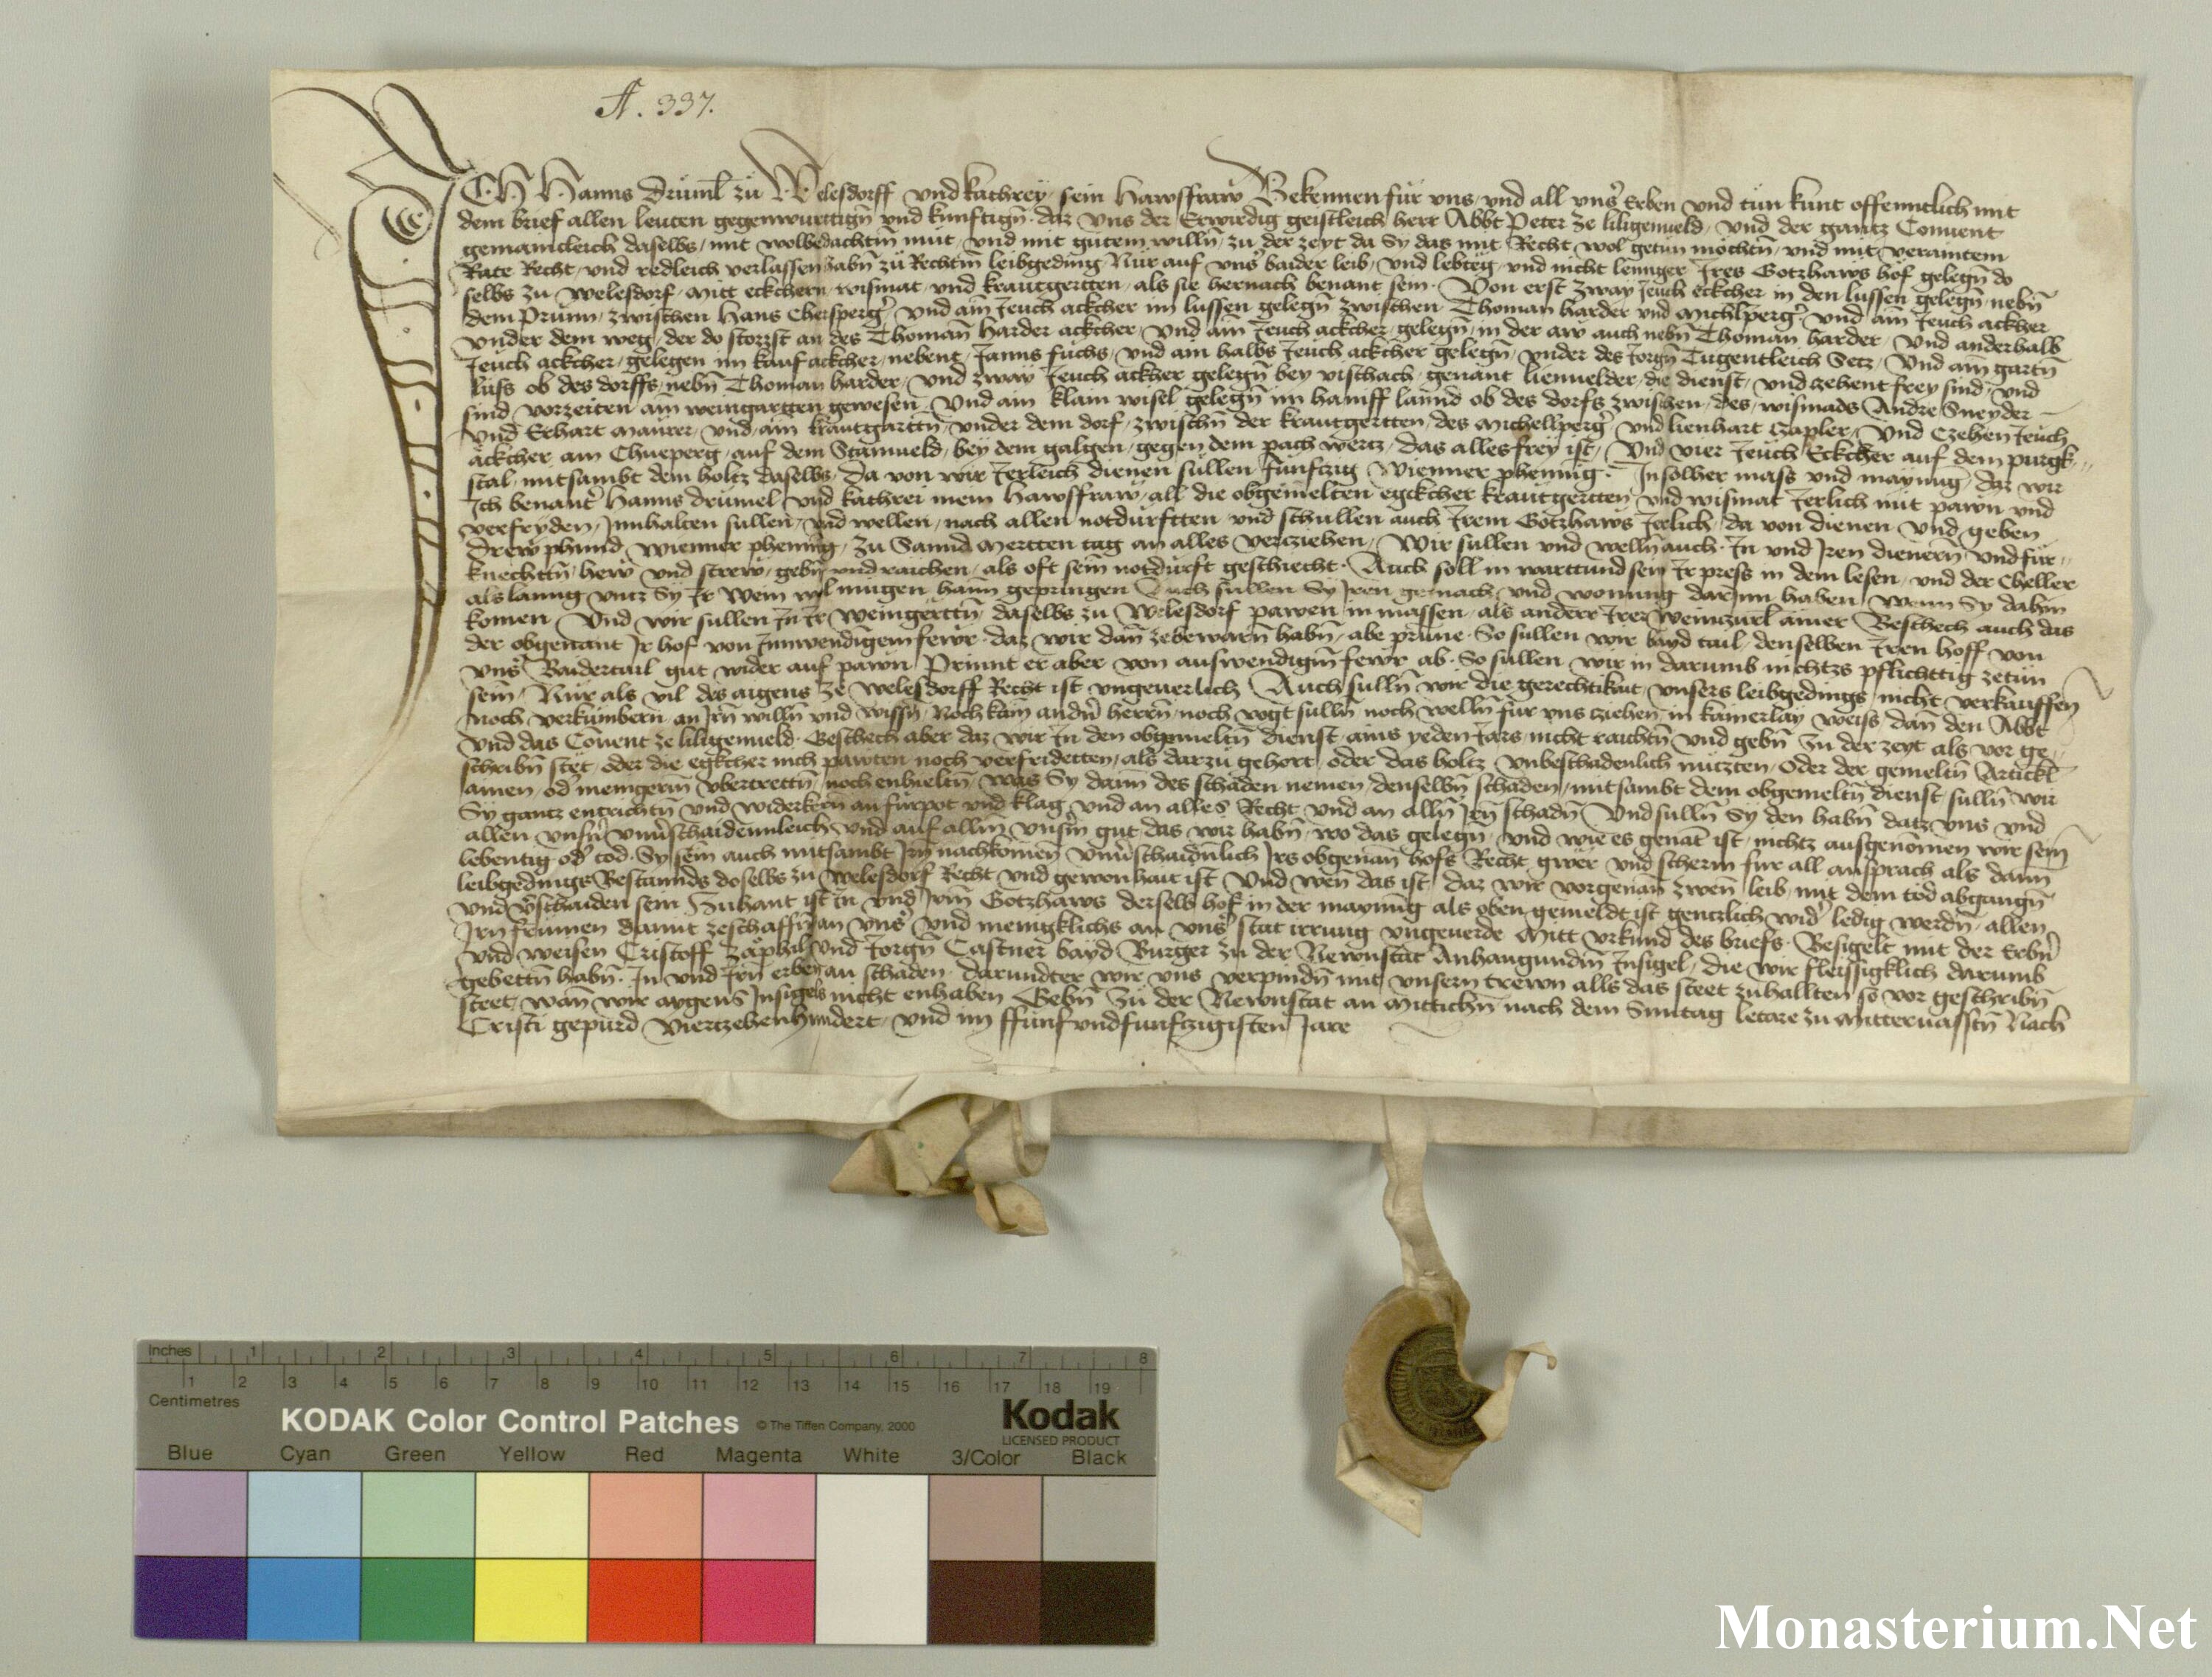 A. 337.
Ich Hanns Drüml zu Welesdorff vnd kathrey sein Hawsfraw Bekennen für vns vnd all vnser Erben vnd tün kunt offenntlich mit
dem brief allen leuten gegenwurttign vnd kunftign daz vns der Erwirdig geistleich herr Abbt Peter ze liligenueld vnd der gantz Conuent
gemaincleich daselbs mit wolbedachtm müt vnd mit gutem willn zu der zeyt da Sy das mit Recht wol getun mochtn vnd mit veraintem
Rate Recht vnd redleich verlassen habn zu Rechtm leibgeding Nur auf vnser baider leib vnd lebteg vnd nicht lennger Jres Gotzhaws hof gelegn do
selbs zu welesdorf mitt eckchern wismat vnd krautgertten als sie hernach benant sein Von erst zway Jeuch eckcher in den lussen gelegn nebn
dem Prunn zwischen Hans Ebersperger vnd ain Jeuch ackcher im lussen gelegn zwischen Thoman harder vnd michlperger vnd ain Jeuch ackher
vnder dem weg der do storzst an des Thoman harder ackcher vnd ain Jeuch ackcher gelegn in der aw auch nebn Thoman harder vnd anderhalb
Jeuch ackcher gelegen im kaufackcher nebent Janns fuchs vnd ain halbs Jeuch ackcher gelegn vnder des Jorgn Tugentleich Setz Vnd ain gartn
luss ob des dorffs nebn Thoman harder vnd zway Jeuch ackher gelegn bey vischach genant lienuelder die dienst vnd zehent frey sind vnd
sind vorzeiten ain weingartten gewesen Vnd ain klain wisel gelegn im hanff lannd ob des dorfs zwischen des wismads Andre Sneyder
vnd Erhart maurer vnd ain krautgarttn vnder dem dorf zwischn der krautgertten des michellperger vnd lienhart Czapler Vnd Czehen Jeuch
ackcher am Chueperg auf dem Stainueld bey dem galgen gegen dem pach wertz das alles frey ist Vnd vier Jeuch Eckcher auf dem purgk
stal mitsambt dem holtz daselbs da von wir Jerleich dienen sullen funfczig wienner phennig Jn solher mass vnd maynung daz wir
Jch benanter Hanns drümel vnd kathrei mein Hawsfraw all die obgemelten egkcher krautgertten vnd wismat Jerlich mit pawn vnd
verfryden Jnnhalten sullen vnd wellen nach allen notdurftten vnd schullen auch Jrem Gotzhaws Jerlich da von dienen vnd geben
drew phund wienner phennig zu Sannd Mertten tag an alles verziehen Wir sullen vnd welln auch Jn vnd Jren dienern vnd für
knechttn hew vnd strew gebn vnd raichen als oft sein notdurft geschiecht Auch soll in warttund sein Jr press in dem lesen vnd der Cheller
als lanng vntz Sy Jr wein wol mugen haim gepringen Auch sullen Sy Jren gemach vnd wonung darjnn haben wenn Sy dahin
komen Vnd wir sullen Jn Jr weingerttn daselbs zu Welesdorf pawen in massen als anderr Jrer weinzürl ainer Beschech auch das
der obgenant Jr hof von Jnnwendigem fewr daz wir dan zebewarn habn abe prune So sullen wir bayd tail denselben Jren hoff von
vnser Baidertail gut wider auf pawn Prinnt er aber von auswendigm fewr ab So sullen wir in darumb nichtzs pflichttig zetün
sein Nur als vil des aigens ze welesdorff Recht ist vngeuerlich Auch sulln wir die gerechtikait vnsers leibgedings nicht verkauffen
noch verkümbern an Jrn willn vnd wissn Noch kain andern herrn noch vogt sulln noch welln für vns cziehen in kainerlay weiss dan den Abbt
vnd das Conuent ze liligenueld Beschech aber daz wir Jn den obgemeltn dienst ains yeden Jars nicht raichtn vnd gebn Zu der zeyt als vor ge
schribn stet oder die egkcher nich pawten noch verfridetten als darzu gehort oder das holtz vnbeschadenlich nutzten Oder der gemeltn Artickl
ainen oder menigerm vbertrettn noch enhieltn was Sy dann des schaden nemen denselbn schaden mitsambt dem obgemeltn dienst sulln wir
Sy gantz entrichtn vnd widerkern an fürpot vnd klag vnd an alles Recht vnd an alln Jrn schadn Vnd sulln Sy den habn datz vns vnd
allen vnsern vnuerschaidennleich vnd auf allm vnserm gut das wir habn wo das gelegn vnd wie es genat ist nichtz ausgenomen wir sein
lebentig oder tod Sy sein auch mitsambt Jrn nachkomen vnuerschaidnlich Jrs obgenan hofs Recht gwer vnd scherm fur all ansprach als dann
leibgedings Bestannds doselbs zu welesdorf Recht vnd gewonhait ist Vnd wen das ist daz wir vorgenan zwen leib mit dem tod abgangn
vnd verschaiden sein Zuhant ist in vnd Jrm Gotzhaws derselb hof in der maynung als oben gemeldt ist gentzlich wider ledig werdn allen
Jrn frumen damit zeschaffn an vnser vnd menigklichs an vnser stat irrung vngeuerde Mitt vrkund des briefs Besigelt mit der Erbern
vnd weisen Cristoff vnd Jorgn Castner bayd Burger zu der Newnstat Anhangundm Jnsigel die wir fleissigklich darumb
gebettn habn Jn vnd Jrn erben an schaden darundter wir vns verpindn mit vnsern trewn alls das steet zuhallten so vor geschribn
steet wan wir aygens Jnsigels nicht enhaben Gebn Zu der Newnstat an Mittichn nach dem Suntag letare zu mitteruasstn Nach
Cristi gepurd Viertzehenhundert vnd im ffunfvndfunfczigisten Jare
Inches 1 2 3 4 5 6 7 8
1 2 3 4 5 6 7 8 9 10 11 12 13 14 15 16 17 18 19
Centimetres
KODAK Color Control Patches © The Tiffen Company, 2000 Kodak
LICENSED PRODUCT
Blue Cyan Green Yellow Red Magenta White 3/Color Black
Monasterium.Net